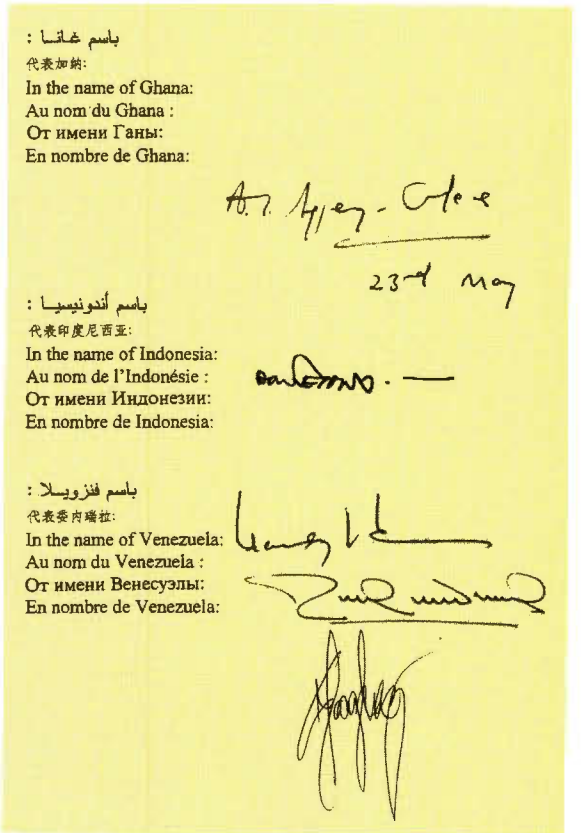 باسم غانا :
代表加纳:
In the name of Ghana:
Au nom du Ghana :
От имени Ганы:
En nombre de Ghana:
23rd May
باسم أندونيسيا :
代表印度尼西亚:
In the name of Indonesia:
Au nom de l'Indonésie :
От имени Индонезии:
En nombre de Indonesia:
باسم فنزويلا :
代表委内瑞拉:
In the name of Venezuela:
Au nom du Venezuela :
От имени Венесуэлы:
En nombre de Venezuela: